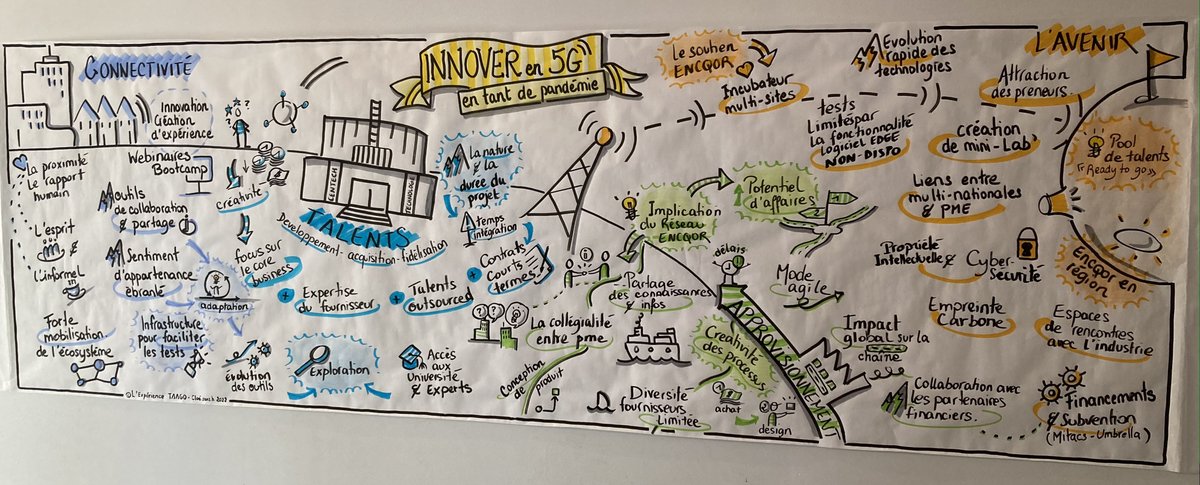 INNOVER en 5G
en tant de pandémie
CONNECTIVITÉ
Innovation
Création
d'expérience
La proximité
Le rapport
humain
Webinaires
Bootcamp
outils
de collaboration
& partage
créativité
L'esprit
L'informel
Sentiment
d'appartenance
ébranlé
adaptation
focus sur
le core
business
Forte
mobilisation
de l'écosystème
Infrastructure
pour faciliter
les tests
évolution
des outils
CENTECH
TECHNOLOGIE
TALENTS
Développement - acquisition - fidélisation
La nature
& la
durée du
projet
temps
intégration
+ Expertise
du fournisseur
+ Talents
outsourced
+ Contrats
courts
termes
Exploration
Accès
aux
Université
& Experts
Le soutien
ENCQOR
Incubateur
multi-sites
Evolution
rapide des
technologies
tests
Limités par
la fonctionnalité
Logiciel EDGE
NON-DISPO
Implication
du Réseau
ENCQOR
Potentiel
d'affaires
Partage
des connaissances
& infos
délais
Mode
agile
La collégialité
entre pme
Conception
de produit
Créativité
des processus
APPROVISIONNEMENT
Diversité
fournisseurs
Limitée
achat
design
Impact
global sur la
chaîne
Collaboration avec
les partenaires
financiers.
L'AVENIR
Attraction
des preneurs.
création
de mini-Lab'
Pool
de talents
"Ready to go"
Liens entre
multi-nationales
& PME
Propriété
Intellectuelle
& Cyber-
Sécurité
Encqor en
région
Empreinte
Carbone
Espaces
de rencontres
avec l'industrie
Financements
& Subvention
(Mitacs - Umbrella)